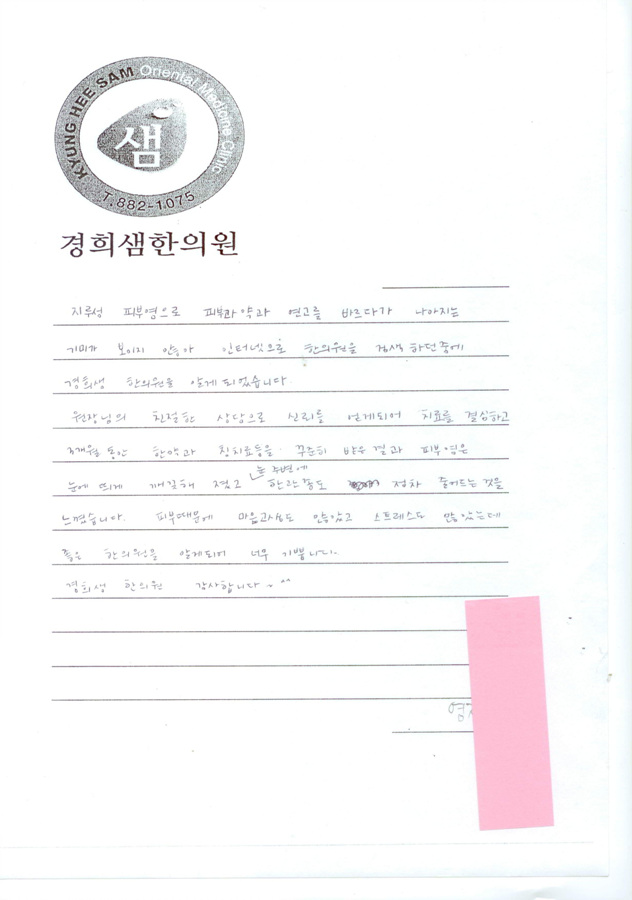 KYUNG HEE SAM Oriental Medicine Clinic
샘
T.882-1075
경희샘한의원
지루성 피부염으로 피부과 약과 연고를 바르다가 나아지는
기미가 보이지 않아 인터넷으로 한의원을 검색 하던중에
경희샘 한의원을 알게되었습니다.
원장님의 친절한 상담으로 신뢰를 얻게되어 치료를 결심하고
3개월 동안 한약과 침치료등을 꾸준히 받은결과 피부염은
눈 주변에
눈에 띄게 깨끗해 졌고 한관종도 점차 줄어드는것을
느꼈습니다. 피부때문에 마음고생도 많았고 스트레스도 많았는데
좋은 한의원을 알게되어 너무 기쁩니다.
경희샘 한의원 감사합니다~^^